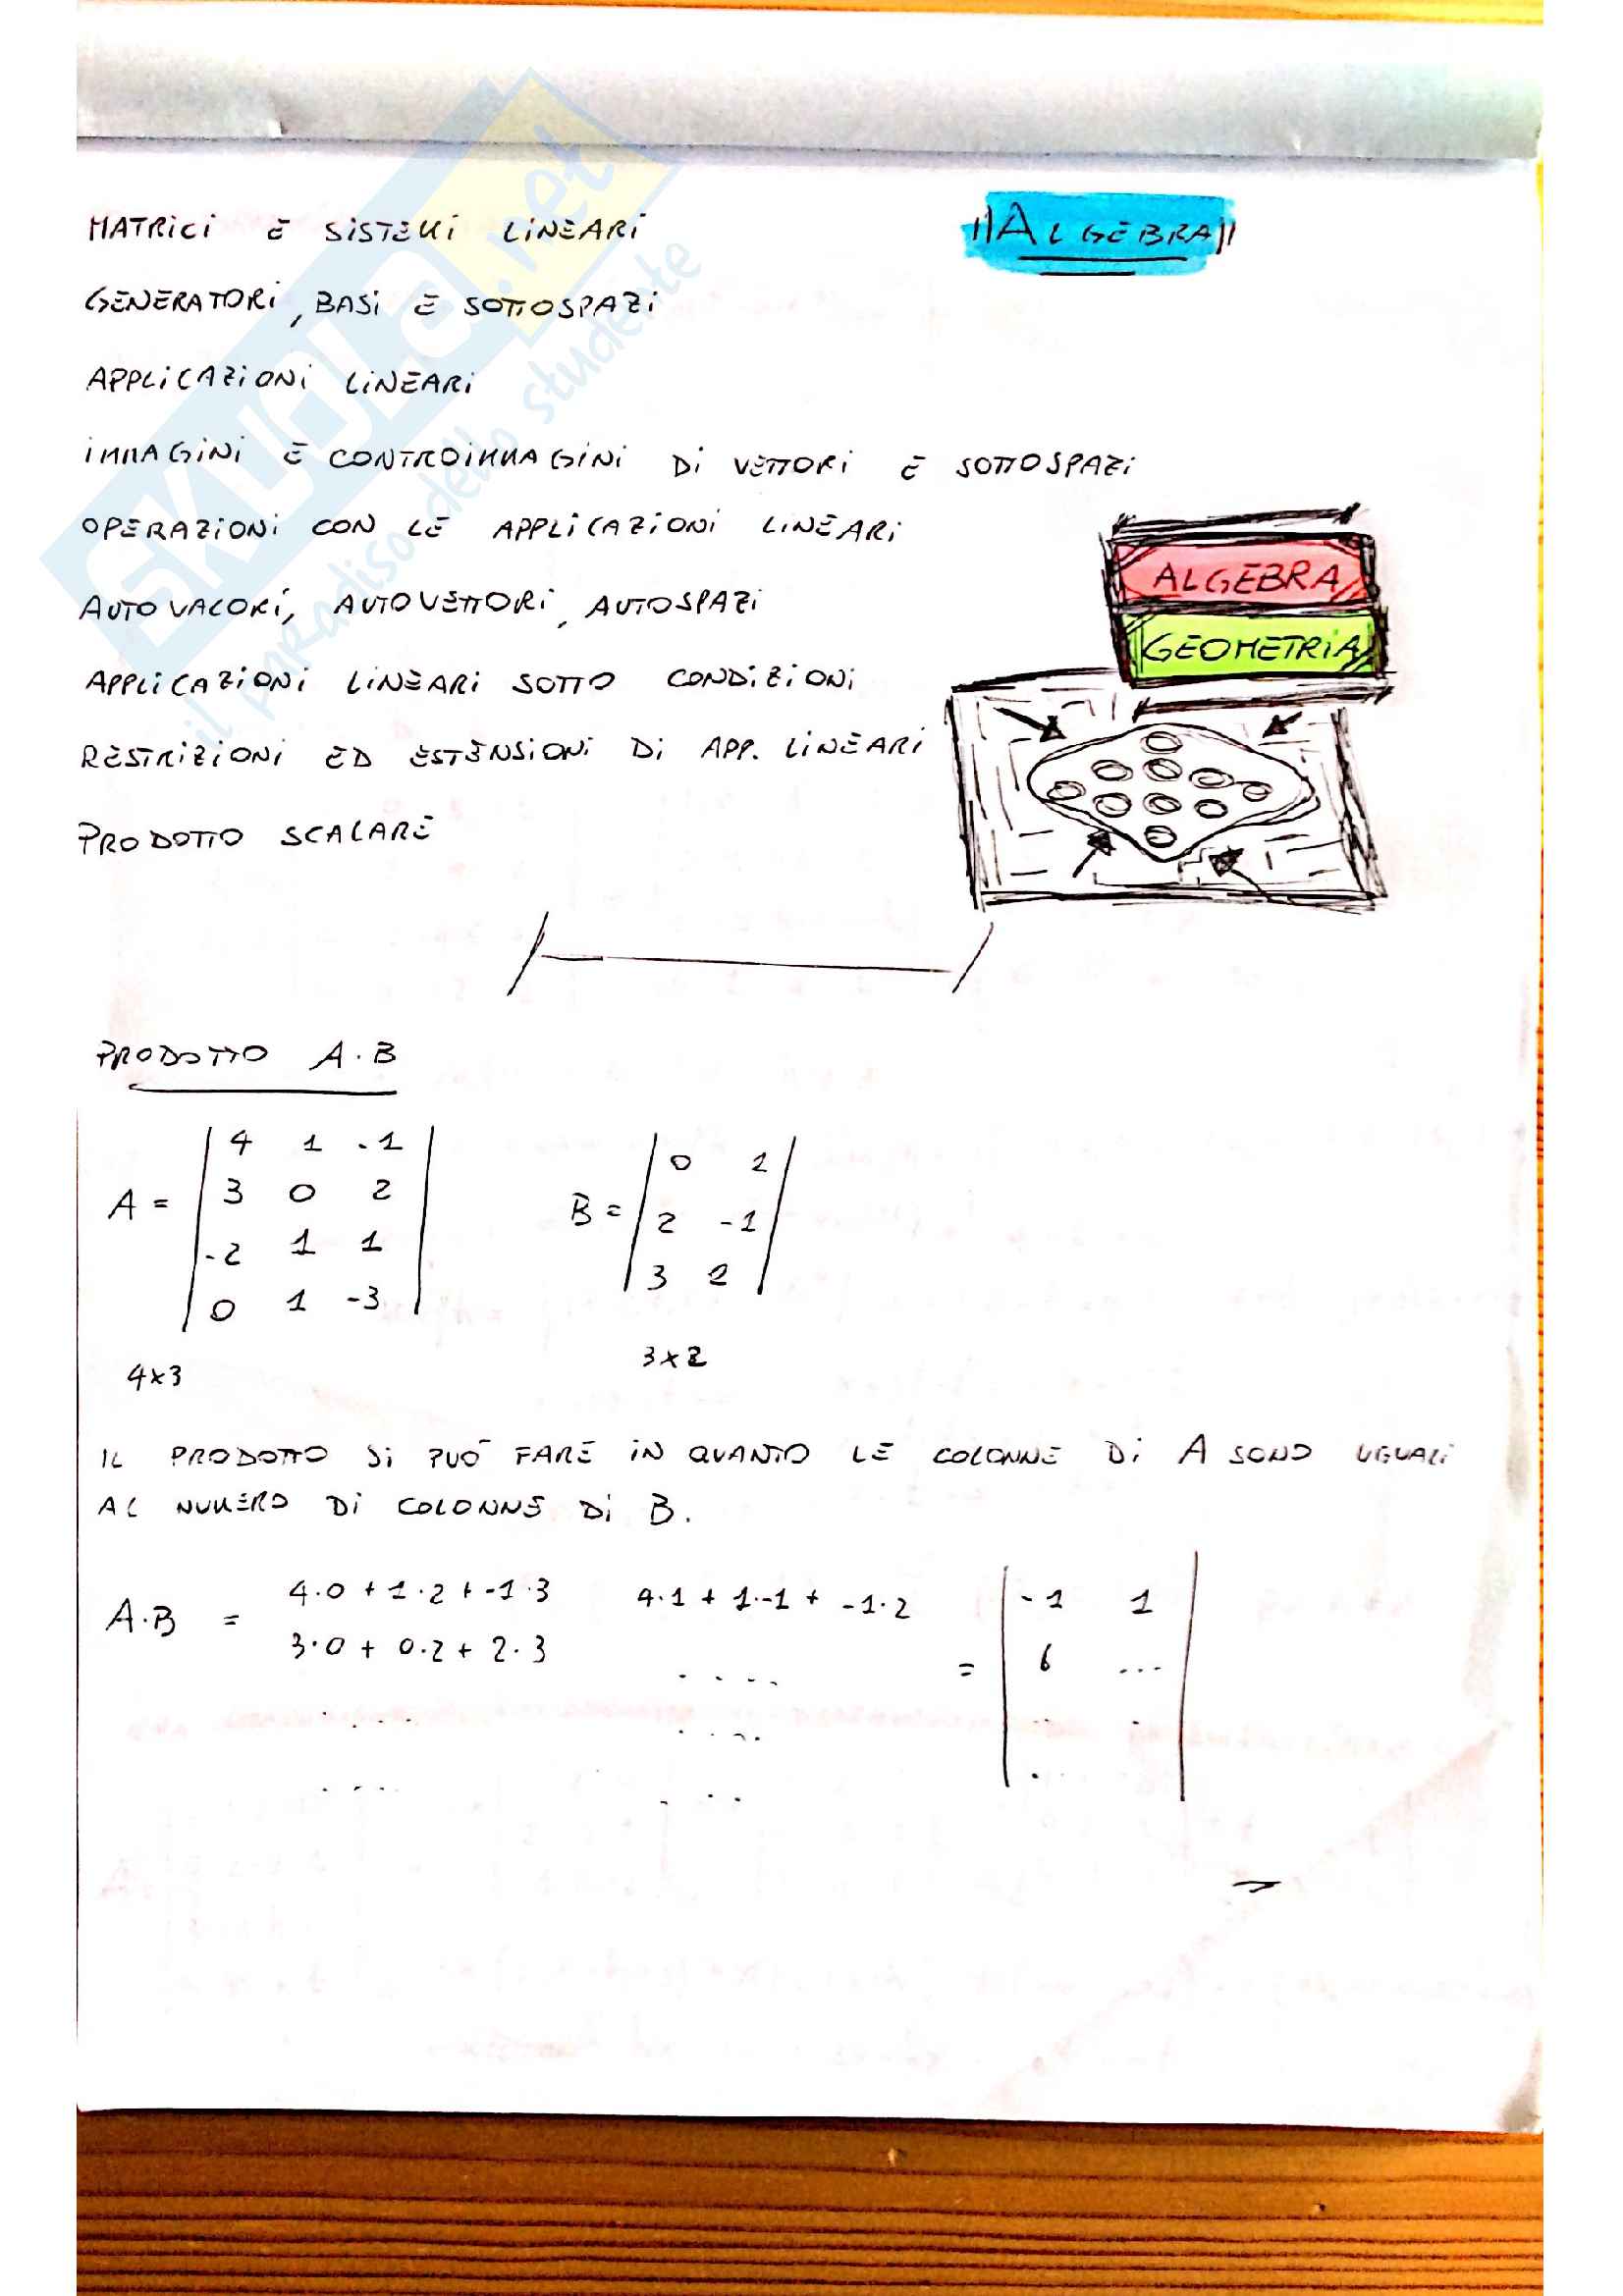 MATRICI E SISTEMI LINEARI
"ALGEBRA"
GENERATORI, BASI E SOTTOSPAZI
APPLICAZIONI LINEARI
IMMAGINI E CONTROIMMAGINI DI VETTORI E SOTTOSPAZI
OPERAZIONI CON LE APPLICAZIONI LINEARI
AUTOVALORI, AUTOVETTORI, AUTOSPAZI
APPLICAZIONI LINEARI SOTTO CONDIZIONI
RESTRIZIONI ED ESTENSIONI DI APP. LINEARI
PRODOTTO SCALARE
ALGEBRA
GEOMETRIA
SKUOLA.net
il paradiso dello studente
PRODOTTO A·B
A = | 4 1 -1 |
| 3 0 2 |
| -2 1 1 |
| 0 1 -3 |
4x3
B = | 0 1 |
| 2 -1 |
| 3 2 |
3x2
IL PRODOTTO SI PUÒ FARE IN QUANTO LE COLONNE DI A SONO UGUALI
AL NUMERO DI COLONNE DI B.
A·B = 4·0 + 1·2 + -1·3 4·1 + 1·-1 + -1·2 = | -1 1 |
3·0 + 0·2 + 2·3 .... | 6 ... |
.... .... | .. . |
.... ... | . |